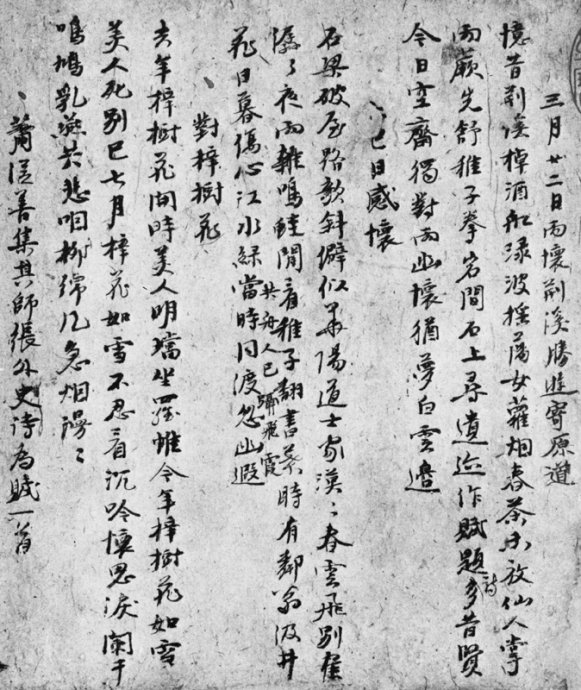 三月廿二日雨懷荊溪勝遊寄原道
憶昔荊溪棹酒舡渌波搖蕩女蘿烟春茶未放仙人掌
雨蕨先舒稚子拳岩間石上尋遺迹作賦題詩多昔賢
今日空齋獨對雨幽懷猶夢白雲邊
己日感懷
石梁破屋路欹斜僻似華陽道士家漠〻春雲飛別崖
潺〻夜雨雜鳴蛙閒看稚子翻書葉時有鄰翁汲井
花日暮傷心江水綠當時同渡忽幽遐
共舟人已躡飛霞
對梓樹花
去年梓樹花開時美人明璫坐羅帷今年梓樹花如雪
美人死別已七月梓花如雪不忍看沉吟懷思淚闌干
鳴鳩乳燕共悲咽柳綿風急烟漫〻
蕭從善集其師張外史詩為賦一首